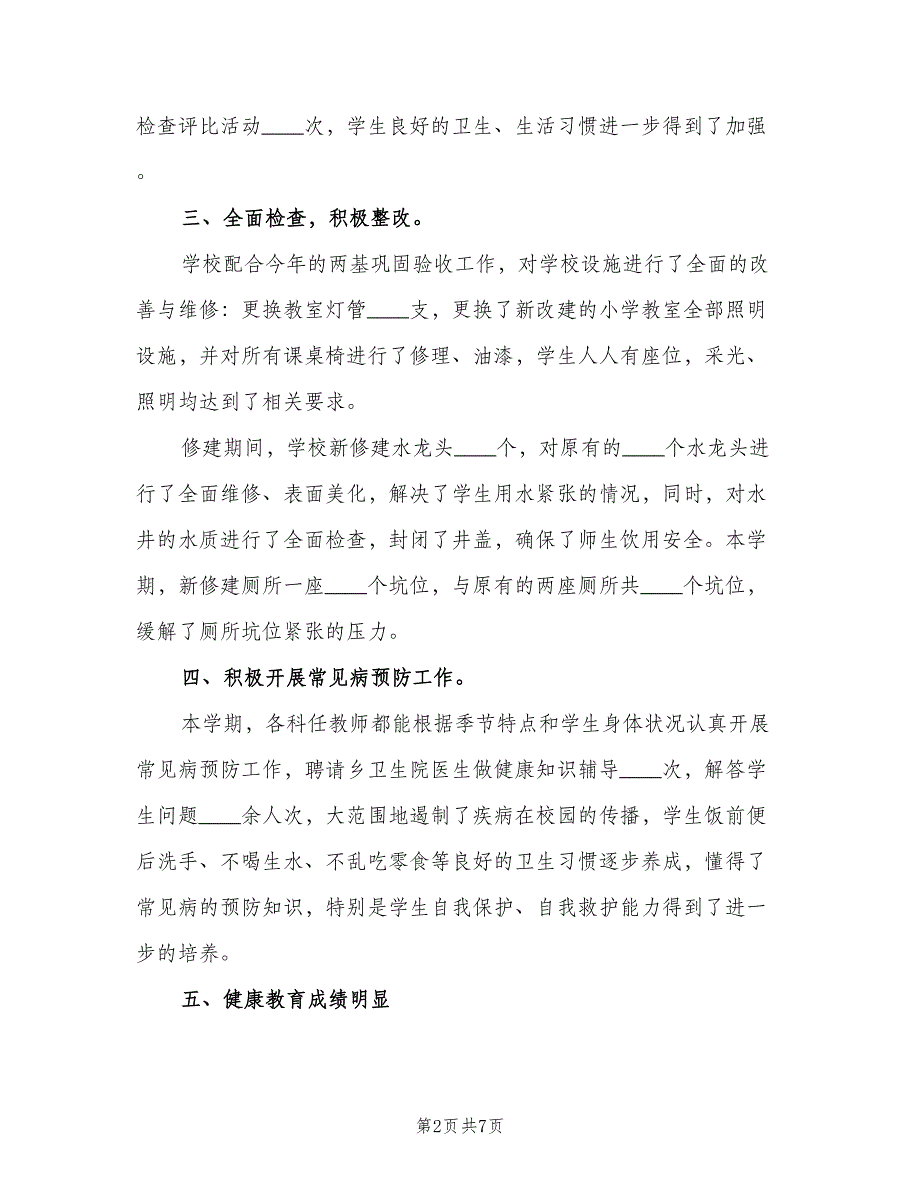 检查评比活动____次，学生良好的卫生、生活习惯进一步得到了加强
。
三、全面检查，积极整改。
学校配合今年的两基巩固验收工作，对学校设施进行了全面的改
善与维修：更换教室灯管____支，更换了新改建的小学教室全部照明
设施，并对所有课桌椅进行了修理、油漆，学生人人有座位，采光、
照明均达到了相关要求。
修建期间，学校新修建水龙头____个，对原有的____个水龙头进
行了全面维修、表面美化，解决了学生用水紧张的情况，同时，对水
井的水质进行了全面检查，封闭了井盖，确保了师生饮用安全。本学
期，新修建厕所一座____个坑位，与原有的两座厕所共____个坑位，
缓解了厕所坑位紧张的压力。
四、积极开展常见病预防工作。
本学期，各科任教师都能根据季节特点和学生身体状况认真开展
常见病预防工作，聘请乡卫生院医生做健康知识辅导____次，解答学
生问题____余人次，大范围地遏制了疾病在校园的传播，学生饭前便
后洗手、不喝生水、不乱吃零食等良好的卫生习惯逐步养成，懂得了
常见病的预防知识，特别是学生自我保护、自我救护能力得到了进一
步的培养。
五、健康教育成绩明显
第2页 共7页